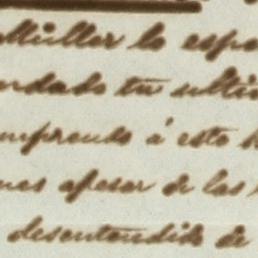 Müller lo espe
ndado tu ulti
mprendo á esto h
nes apesar de las
desentendido de